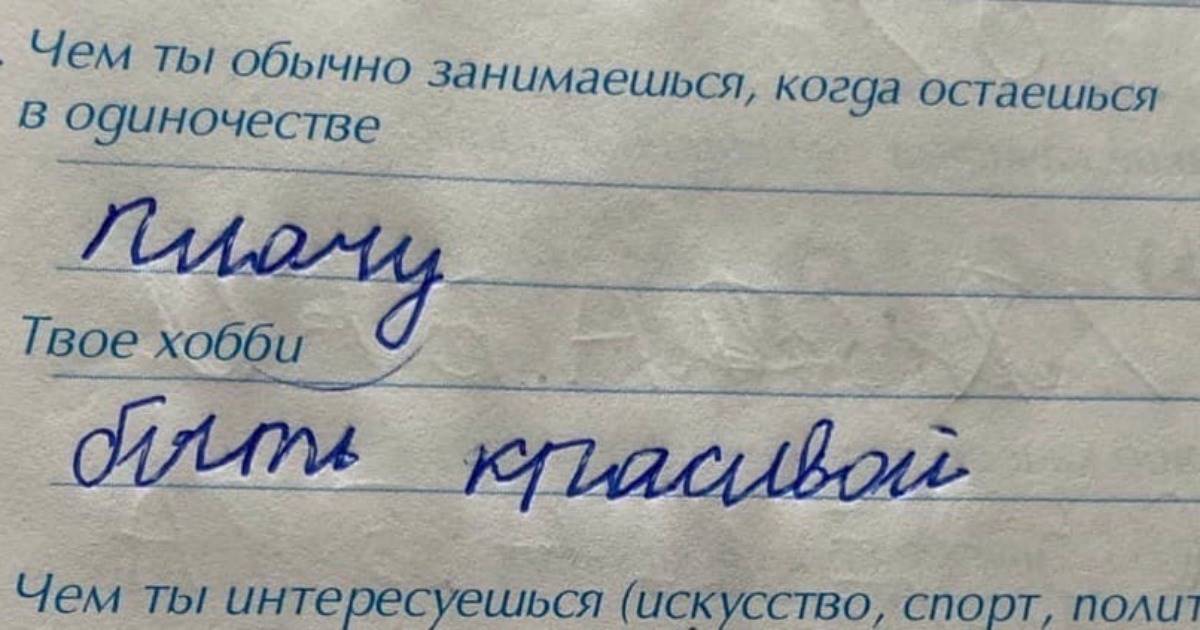 Чем ты обычно занимаешься, когда остаешься
в одиночестве
плачу
Твое хобби
быть красивой
Чем ты интересуешься (искусство, спорт, полит